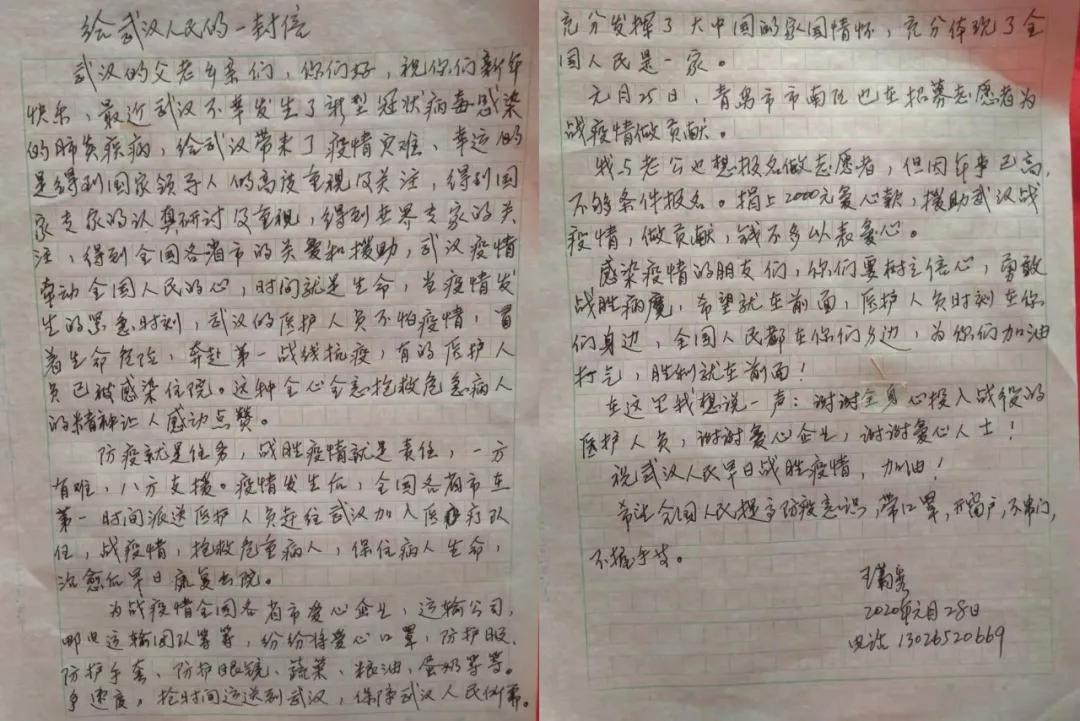 给武汉人民的一封信
武汉的父老乡亲们，你们好，祝你们新年
快乐，最近武汉不幸发生了新型冠状病毒感染
的肺炎疾病，给武汉带来了疫情灾难、幸运的
是得到国家领导人的高度重视及关注，得到国
家专家的认真研讨及重视，得到世界专家的关
注，得到全国各省市的关爱和援助，武汉疫情
牵动全国人民的心，时间就是生命，当疫情发
生的紧急时刻，武汉的医护人员不怕疫情，冒
着生命危险，奔赴第一战线抗疫，有的医护人
员已被感染住院。这种全心全意抢救危急病人
的精神让人感动点赞。
防疫就是任务，战胜疫情就是责任，一方
有难，八方支援。疫情发生后，全国各省市在
第一时间派送医护人员赶往武汉加入医疗队
伍，战疫情，抢救危重病人，保住病人生命，
治愈后早日康复出院。
为战疫情全国各省市爱心企业，运输公司，
运输团队等等，纷纷将爱心口罩，防护服、
防护手套、防护眼镜、蔬菜、粮油、蛋奶等等。
争速度，抢时间运送到武汉，保障武汉人民所需。
充分发挥了大中国的家国情怀，充分体现了全
国人民是一家。
元月25日，青岛市市南区也在招募志愿者为
战疫情做贡献。
我与老公也想报名做志愿者，但因年事已高，
不够条件报名。捐上2000元爱心款，援助武汉战
疫情，做贡献，钱不多以表爱心。
感染疫情的朋友们，你们要树立信心，勇敢
战胜病魔，希望就在前面，医护人员时刻在你
们身边，全国人民都在你们身边，为你们加油
打气，胜利就在前面！
在这里我想说一声：谢谢全身心投入战役的
医护人员，谢谢爱心企业，谢谢爱心人士！
祝武汉人民早日战胜疫情，加油！
希望全国人民提高防疫意识，带口罩，开窗户，不串门，
不握手。
王菊
2020年元月28日
电话13026520669